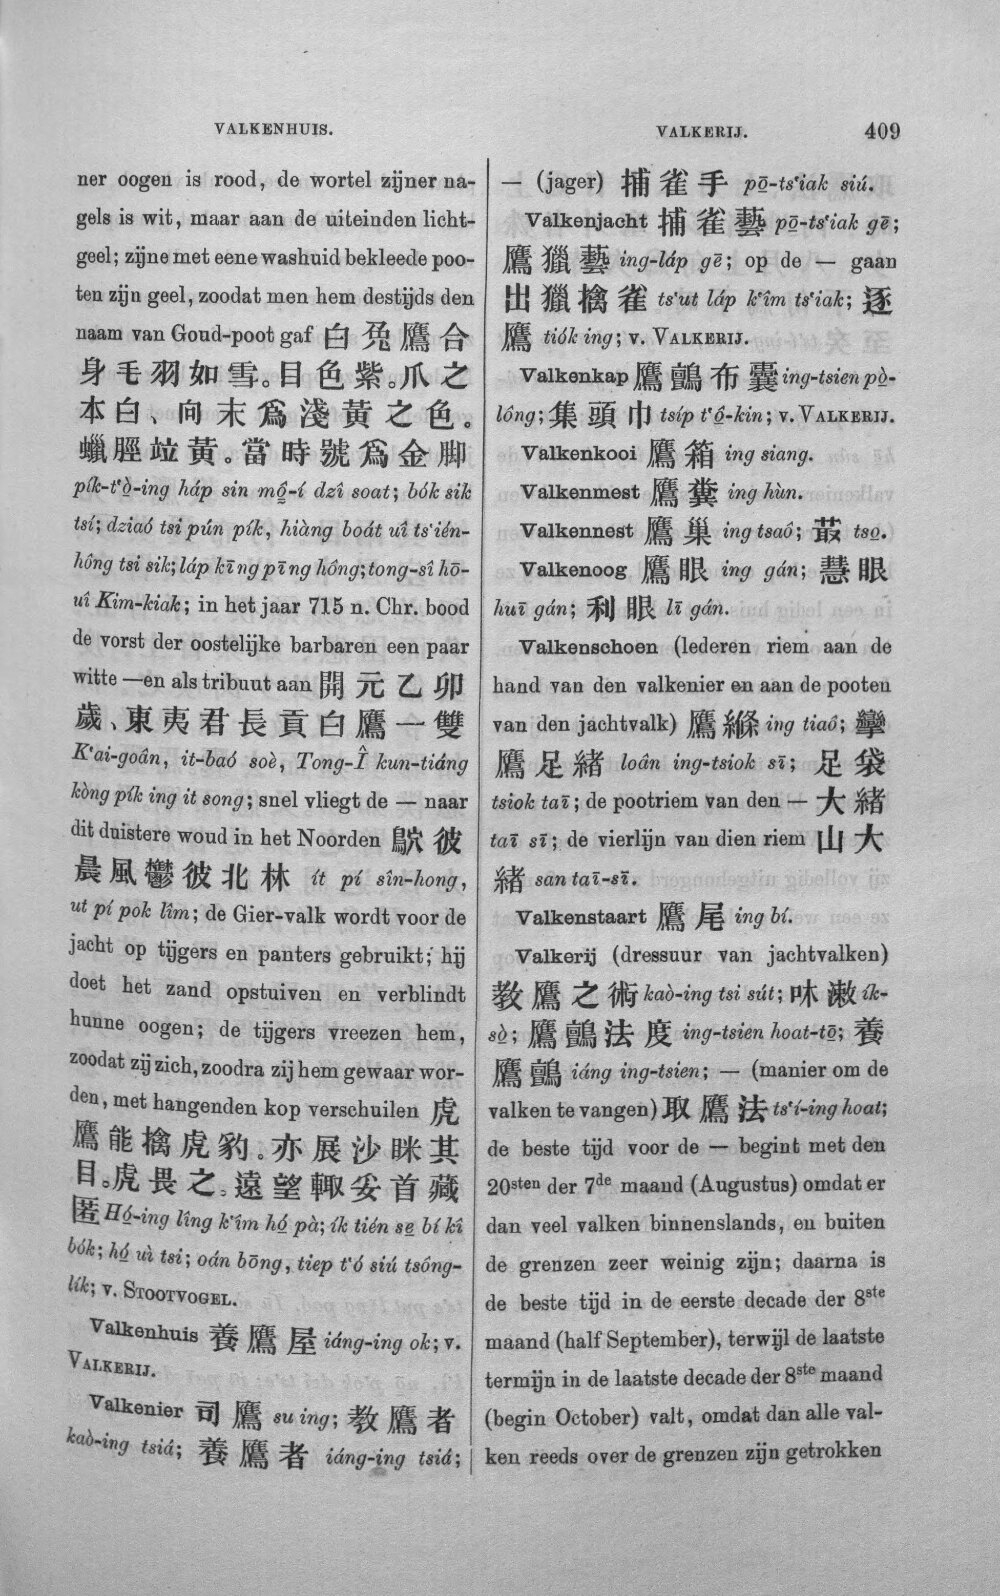 VALKENHUIS.
VALKERIJ. 409
ner oogen is rood, de wortel zijner na-
gels is wit, maar aan de uiteinden licht-
geel; zijne met eene washuid bekleede poo-
ten zijn geel, zoodat men hem destijds den
naam van Goud-poot gaf 白兔鷹合
身毛羽如雪。目色紫。爪之
本白、向末爲淺黃之色。
蠟脛竝黃。當時號爲金脚
pík-t'ò̤-ing háp sin mô̤-í dzî soat; bók sik
tsí; dziaó tsi pún pík, hiàng boát uî ts'ién-
hông tsi sik; láp kīng pīng hông; tong-sî hō-
uî Kim-kiak; in het jaar 715 n. Chr. bood
de vorst der oostelijke barbaren een paar
witte —en als tribuut aan 開元乙卯
歲、東夷君長貢白鷹一雙
K'ai-goân, it-baó soè, Tong-Î kun-tiáng
kòng pík ing it song; snel vliegt de — naar
dit duistere woud in het Noorden 鴥彼
晨風鬱彼北林 ít pí sîn-hong,
ut pí pok lîm; de Gier-valk wordt voor de
jacht op tijgers en panters gebruikt; hij
doet het zand opstuiven en verblindt
hunne oogen; de tijgers vreezen hem,
zoodat zij zich, zoodra zij hem gewaar wor-
den, met hangenden kop verschuilen 虎
鷹能擒虎豹。亦展沙眯其
目。虎畏之。遠望輙妥首藏
匿 Hó̤-ing lîng k'îm hó̤ pà; ík tién se̤ bí kî
bók; hó̤ uì tsi; oán bōng, tiep t'ó siú tsông-
lík; v. STOOTVOGEL.
Valkenhuis 養鷹屋 iáng-ing ok; v.
VALKERIJ.
Valkenier 司鷹 su ing; 教鷹者
kaò-ing tsiá; 養鷹者 iáng-ing tsiá;
— (jager) 捕雀手 pō̤-ts'iak siú.
Valkenjacht 捕雀藝 pō̤-ts'iak gē;
鷹獵藝 ing-láp gē; op de — gaan
出獵擒雀 ts'ut láp k'îm ts'iak; 逐
鷹 tiók ing; v. VALKERIJ.
Valkenkap 鷹鸇布囊 ing-tsien pò̤-
lông; 集頭巾 tsíp t'ô̤-kin; v. VALKERIJ.
Valkenkooi 鷹箱 ing siang.
Valkenmest 鷹糞 ing hùn.
Valkennest 鷹巢 ing tsaô; 菆 tso̤.
Valkenoog 鷹眼 ing gán; 慧眼
huī gán; 利眼 lī gán.
Valkenschoen (lederen riem aan de
hand van den valkenier en aan de pooten
van den jachtvalk) 鷹絛 ing tiaô; 攣
鷹足緒 loân ing-tsiok sī; 足袋
tsiok taī; de pootriem van den — 大緒
taī sī; de vierlijn van dien riem 山大
緒 san taī-sī.
Valkenstaart 鷹尾 ing bí.
Valkerij (dressuur van jachtvalken)
教鷹之術 kaò-ing tsi sút; 咊漱 ík-
sò̤; 鷹鸇法度 ing-tsien hoat-tō̤; 養
鷹鸇 iáng ing-tsien; — (manier om de
valken te vangen) 取鷹法 ts'í-ing hoat;
de beste tijd voor de — begint met den
20sten der 7de maand (Augustus) omdat er
dan veel valken binnenslands, en buiten
de grenzen zeer weinig zijn; daarna is
de beste tijd in de eerste decade der 8ste
maand (half September), terwijl de laatste
termijn in de laatste decade der 8ste maand
(begin October) valt, omdat dan alle val-
ken reeds over de grenzen zijn getrokken